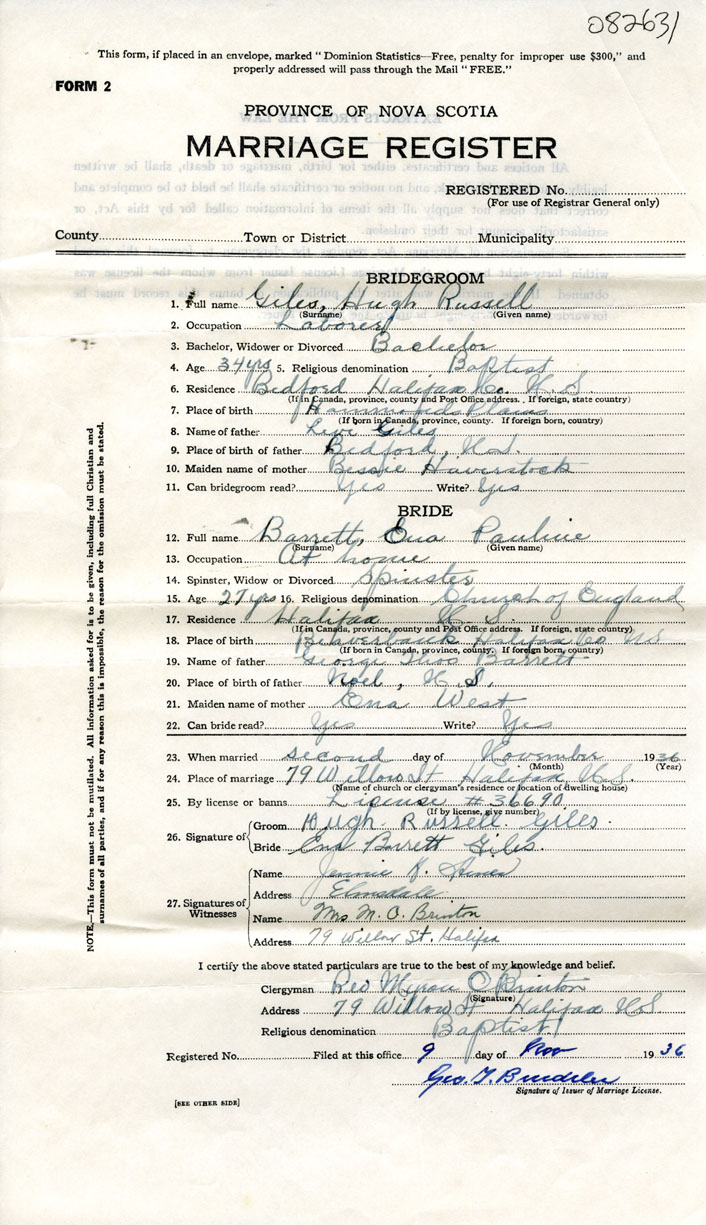 082631
This form, if placed in an envelope, marked "Dominion Statistics—Free, penalty for improper use $300," and
properly addressed will pass through the Mail "FREE."
FORM 2
PROVINCE OF NOVA SCOTIA
MARRIAGE REGISTER
REGISTERED No.
(For use of Registrar General only)
County Town or District Municipality
BRIDEGROOM
1. Full name Giles, Hugh Russell
(Surname) (Given name)
2. Occupation Laborer
3. Bachelor, Widower or Divorced Bachelor
4. Age 34 yrs 5. Religious denomination Baptist
6. Residence Bedford Halifax Co. N.S.
(If in Canada, province, county and Post Office address. If foreign, state country)
7. Place of birth Hammonds Plains
(If born in Canada, province, county. If foreign born, country)
8. Name of father Levi Giles
9. Place of birth of father Bedford, N.S.
10. Maiden name of mother Bessie Haverstock
11. Can bridegroom read? Yes Write? Yes
BRIDE
12. Full name Barrett, Ena Pauline
(Surname) (Given name)
13. Occupation At home
14. Spinster, Widow or Divorced Spinster
15. Age 27 yrs 16. Religious denomination Church of England
17. Residence Halifax N.S.
(If in Canada, province, county and Post Office address. If foreign, state country)
18. Place of birth Beaverbank Halifax Co N.S
(If born in Canada, province, county. If foreign born, country)
19. Name of father George Thos Barrett
20. Place of birth of father Noel, N.S.
21. Maiden name of mother Ena West
22. Can bride read? Yes Write? Yes
23. When married second day of November 1936
(Month) (Year)
24. Place of marriage 79 Willow St Halifax N.S.
(Name of church or clergyman's residence or location of dwelling house)
25. By license or banns License # 36690
(If by license, give number)
26. Signature of Groom Hugh Russell Giles.
Bride Ena Barrett Giles.
27. Signatures of Witnesses Name Jennie K.
Address Elmsdale
Name Mrs M. O. Brinton
Address 79 Willow St. Halifax
I certify the above stated particulars are true to the best of my knowledge and belief.
Clergyman Rev Myron O Brinton
(Signature)
Address 79 Willow St Halifax N.S
Religious denomination Baptist
Registered No. Filed at this office 9 day of Nov 1936
Geo. T.
Signature of Issuer of Marriage License.
[SEE OTHER SIDE]
NOTE.—This form must not be mutilated. All information asked for is to be given, including full Christian and
surnames of all parties, and if for any reason this is impossible, the reason for the omission must be stated.